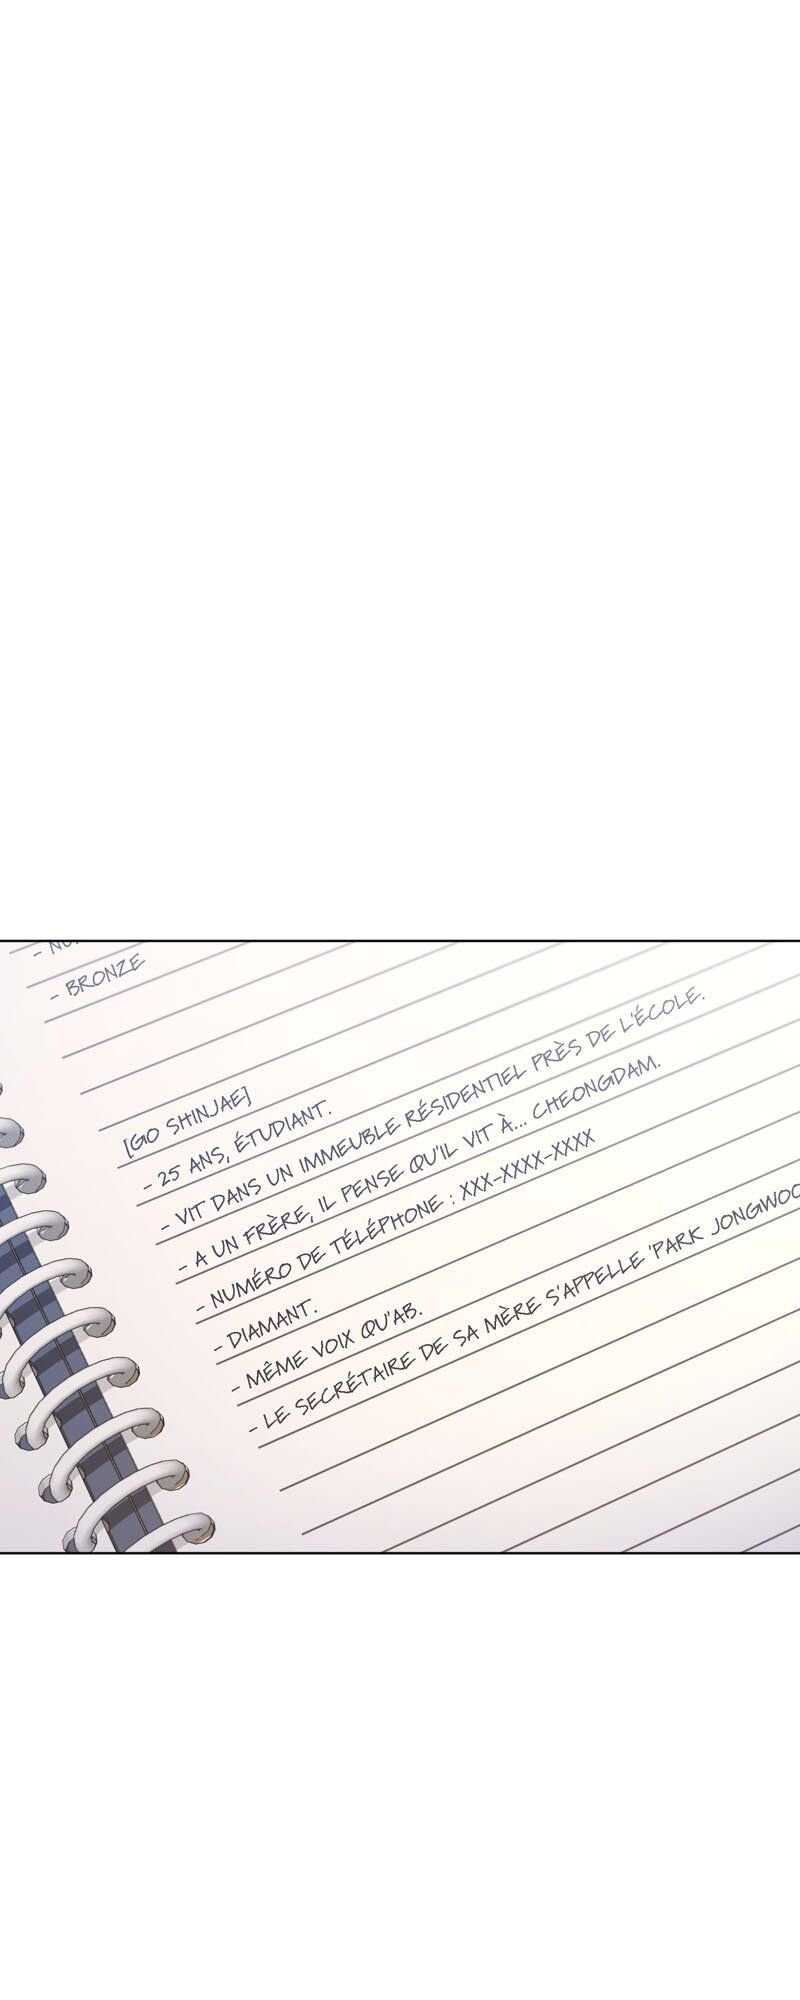 - BRONZE
[GO SHINJAE]
- 25 ANS, ÉTUDIANT.
- VIT DANS UN IMMEUBLE RÉSIDENTIEL PRÈS DE L'ÉCOLE.
- A UN FRÈRE, IL PENSE QU'IL VIT À... CHEONGDAM.
- NUMÉRO DE TÉLÉPHONE : XXX-XXXX-XXXX
- DIAMANT.
- MÊME VOIX QU'AB.
- LE SECRÉTAIRE DE SA MÈRE S'APPELLE 'PARK JONGWOO